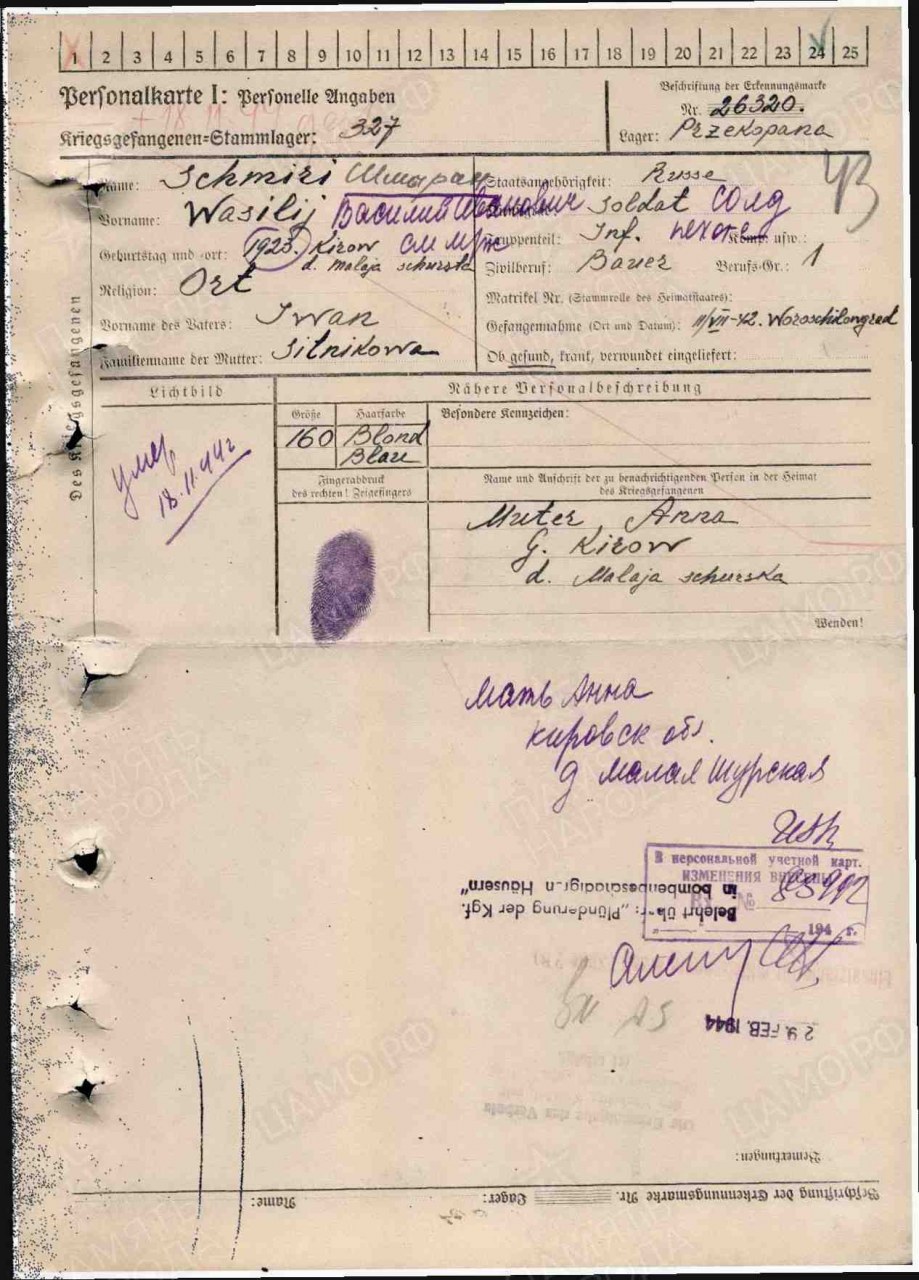 1 2 3 4 5 6 7 8 9 10 11 12 13 14 15 16 17 18 19 20 21 22 23 24 25
Personalkarte I: Personelle Angaben
Kriegsgefangenen=Stammlager: 327
Beschriftung der Erkennungsmarke
Nr. 26320.
Lager: Przekopana
Des Kriegsgefangenen
Name: Schmiri
Vorname: Wasilij Василий Иванович
Geburtstag und =ort: 1923. Kirow
d. malaja schurska
Religion: Ort
Vorname des Vaters: Iwan
Familienname der Mutter: Sitnikowa
Staatsangehörigkeit: Russe
Soldat солд
Truppenteil: Inf. пехота Komp. usw.:
Zivilberuf: Bauer Berufs-Gr.: 1
Matrikel Nr. (Stammrolle des Heimatstaates):
Gefangennahme (Ort und Datum): 11/VII-42. Woroschilongrad
Ob gesund, krank, verwundet eingeliefert:
43
Lichtbild
умер
18.11.44г
Nähere Personalbeschreibung
Größe Haarfarbe Besondere Kennzeichen:
160 Blond
Blau
Fingerabdruck
des rechten! Zeigefingers
Name und Anschrift der zu benachrichtigenden Person in der Heimat
des Kriegsgefangenen
Muter Anna
G. Kirow
d. Malaja schurska
Wenden!
Мать Анна
Кировск обл.
д Малая Шурская
В персональной учетной карт.
ИЗМЕНЕНИЯ ВНЕСЕНЫ
№
194 г.
Belehrt über: „Plünderung der Kgf.
in bombenbeschädigten Häusern"
29. FEB. 1944
Bemerkungen:
Beschriftung der Erkennungsmarke Nr. Lager: Name:
ПАМЯТЬ НАРОДА
ЦАМО.РФ